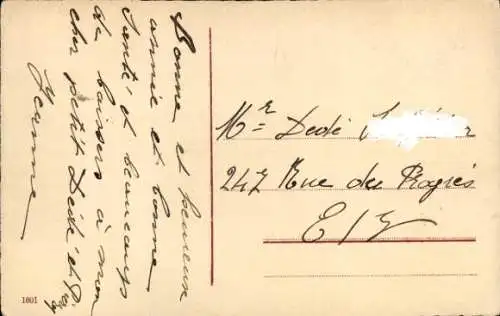 Bonne et heureuse
année et bonne
santé et beaucoup
de baisers à mon
cher petit Dédé et
Yvonne
Mr Dedé
247 Rue des Progrés
E/V
1801